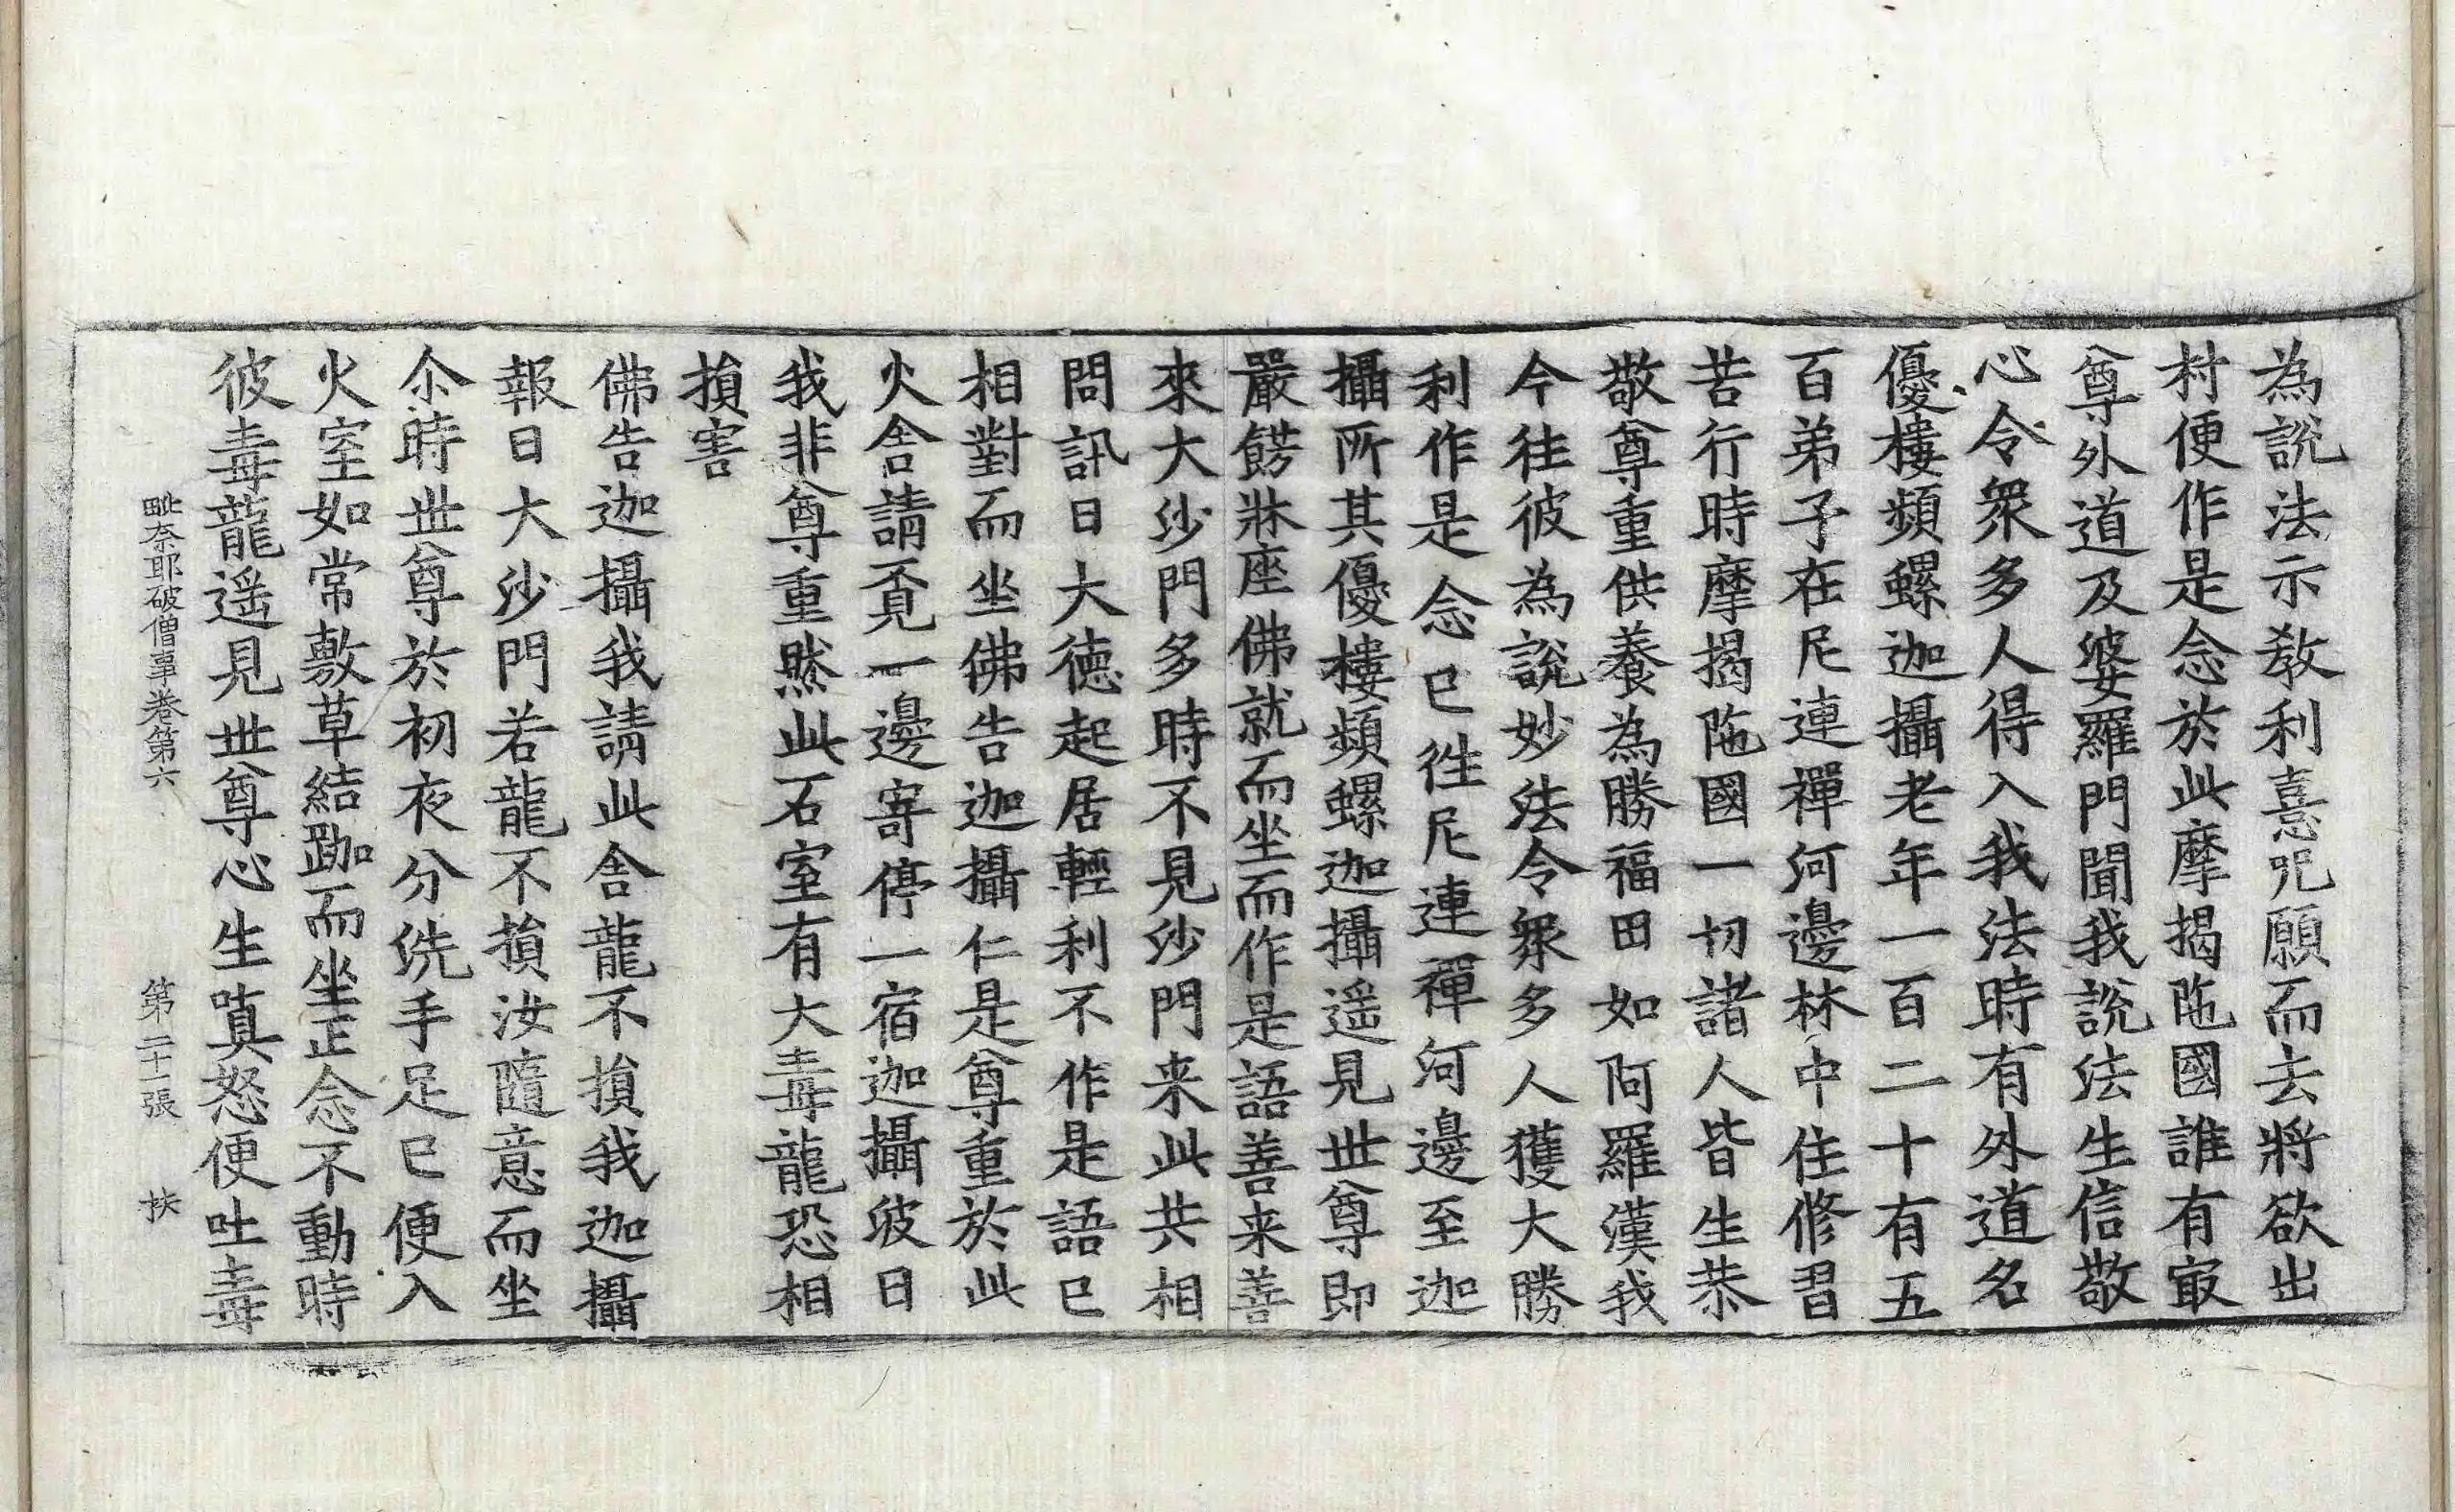 為說法示教利憙呪願而去將欲出
村便作是念於此摩揭陁國誰有㝡
尊外道及婆羅門聞我說法生信敬
心令衆多人得入我法時有外道名
優樓頻螺迦攝老年一百二十有五
百弟子在尼連禪河邊林中住修習
苦行時摩揭陁國一切諸人皆生恭
敬尊重供養為勝福田如阿羅漢我
今往彼為說妙法令衆多人獲大勝
利作是念已徃尼連禪河邊至迦
攝所其優樓頻螺迦攝遥見世尊即
嚴餝牀座佛就而坐而作是語善来善
來大沙門多時不見沙門来此共相
問訊日大德起居輕利不作是語已
相對而坐佛告迦攝仁是尊重於此
火舍請覔一邊寄停一宿迦攝彼日
我非尊重然此石室有大毒龍恐相
損害
佛告迦攝我請此舍龍不損我迦攝
報日大沙門若龍不損汝隨意而坐
尒時世尊於初夜分洗手足已便入
火室如常敷草結跏而坐正念不動時
彼毒龍遥見世尊心生瞋怒便吐毒
毗奈耶破僧事卷第六 第二十一張 扶